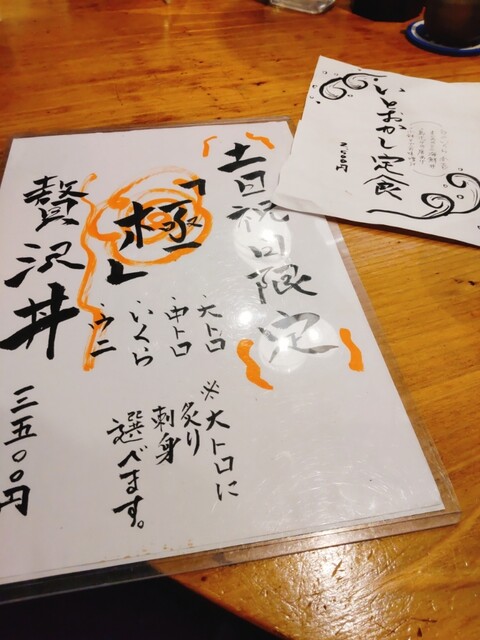 土日祝日限定
「極」
贅沢丼
・大トロ
・中トロ
・いくら
・ウニ
※大トロに
炙り
刺身
選べます。
三五〇〇円
いとおかし定食